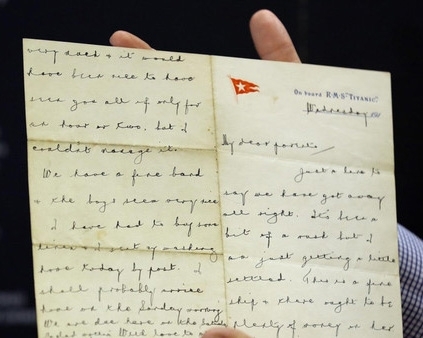 On board R.M.S. "TITANIC".
Wednesday 191
My dear parents
Just a line to
say we have got away
all right. It's been a
bit of a rush but I
am just getting a little
settled. This is a fine
ship & there ought to be
plenty of money on her
very much & it would
have been nice to have
seen you all if only for
an hour or two, but I
couldn't manage it.
We have a fine band
& the boys seem very nice
I have had to buy some
linen & I sent my washing
home today by post. I
shall probably arrive
home on the Sunday morning
We are due here on the Saturday
With love to